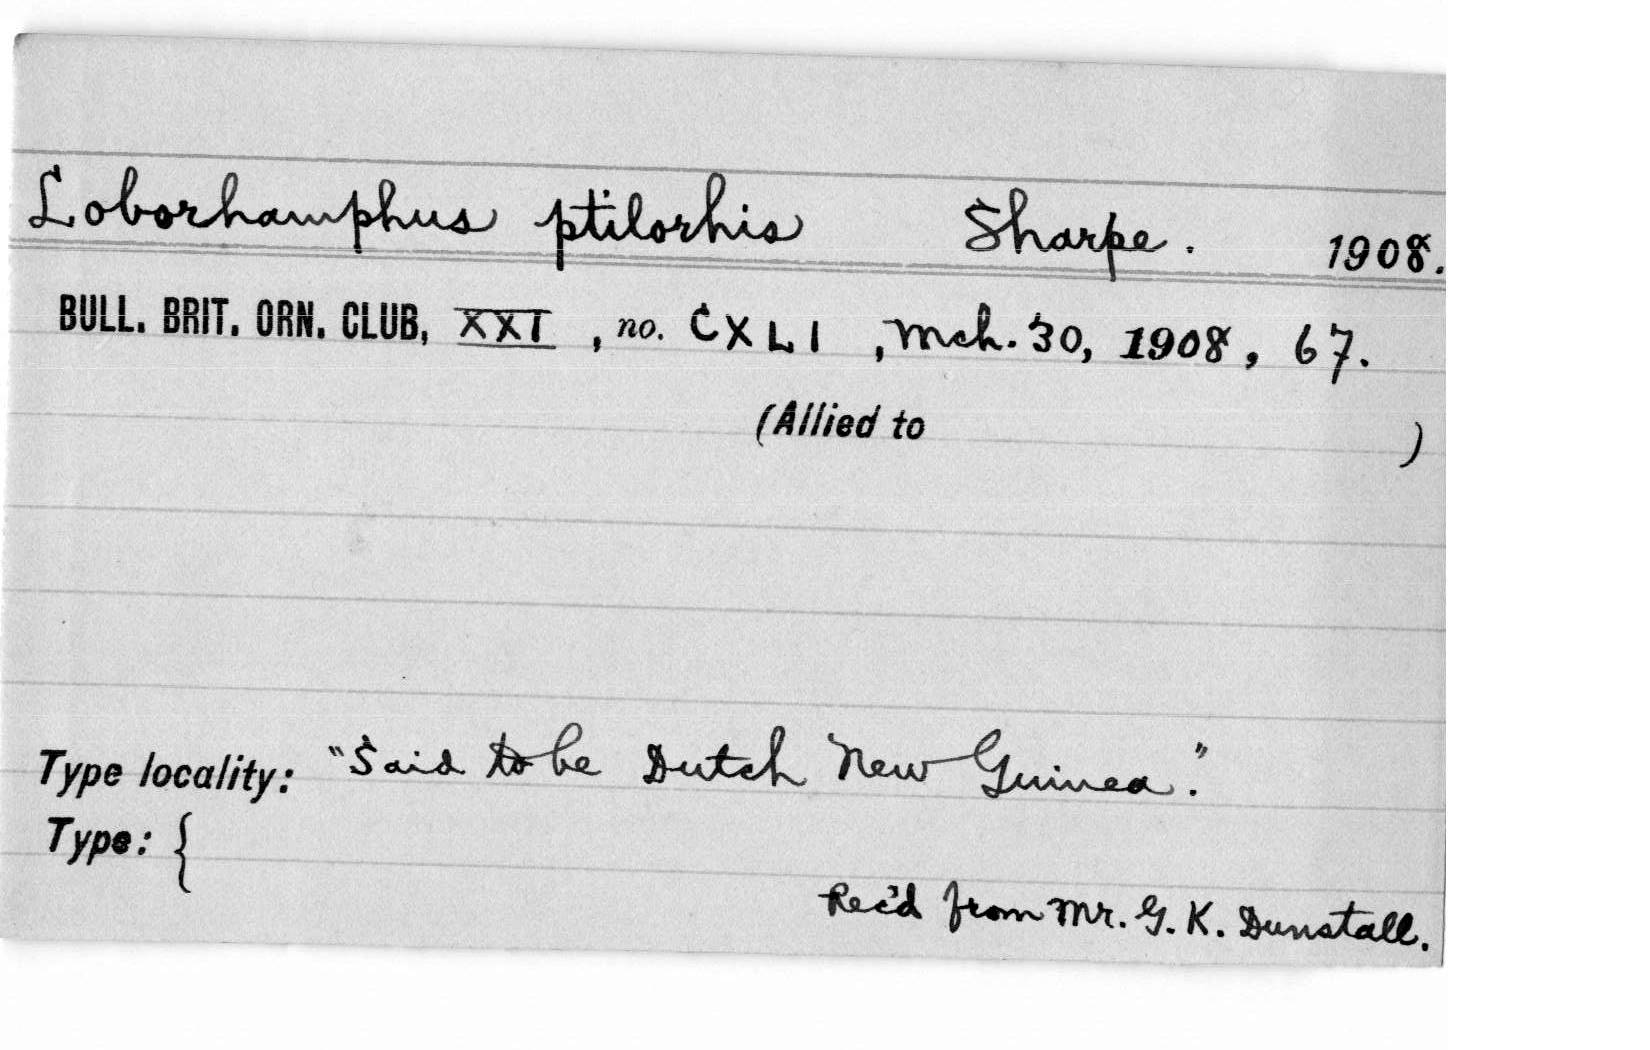 Loborhamphus ptilorhis Sharpe. 1908.
BULL. BRIT. ORN. CLUB, XXI, no. CXLI, Mch. 30, 1908, 67.
(Allied to )
Type locality: "Said to be Dutch New Guinea."
Type: {
Rec'd from Mr. G. K. Dunstall.